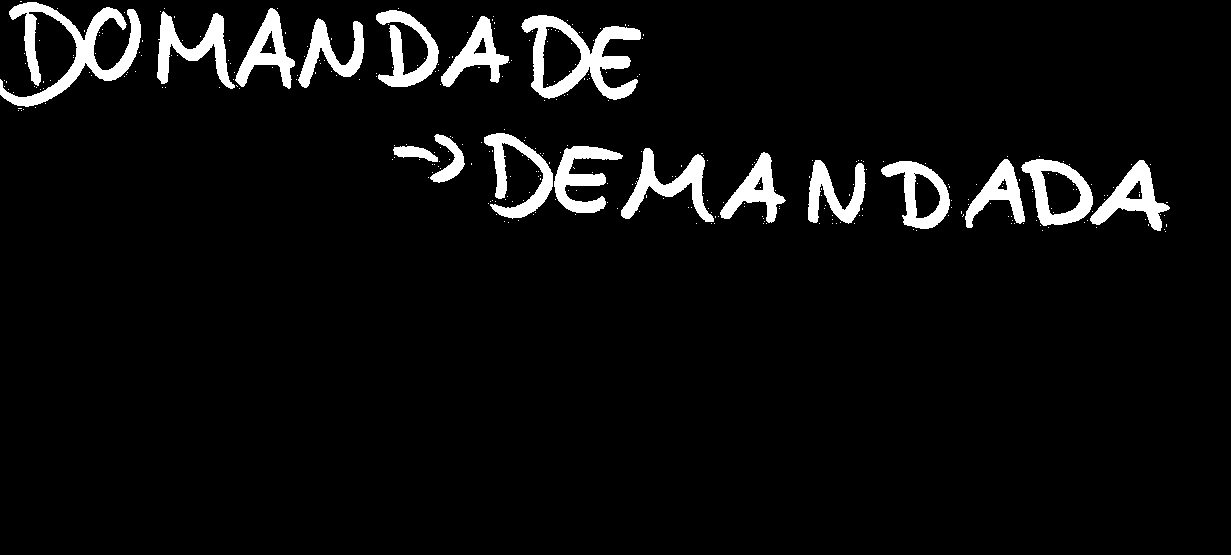 DOMANDADE
→ DEMANDADA